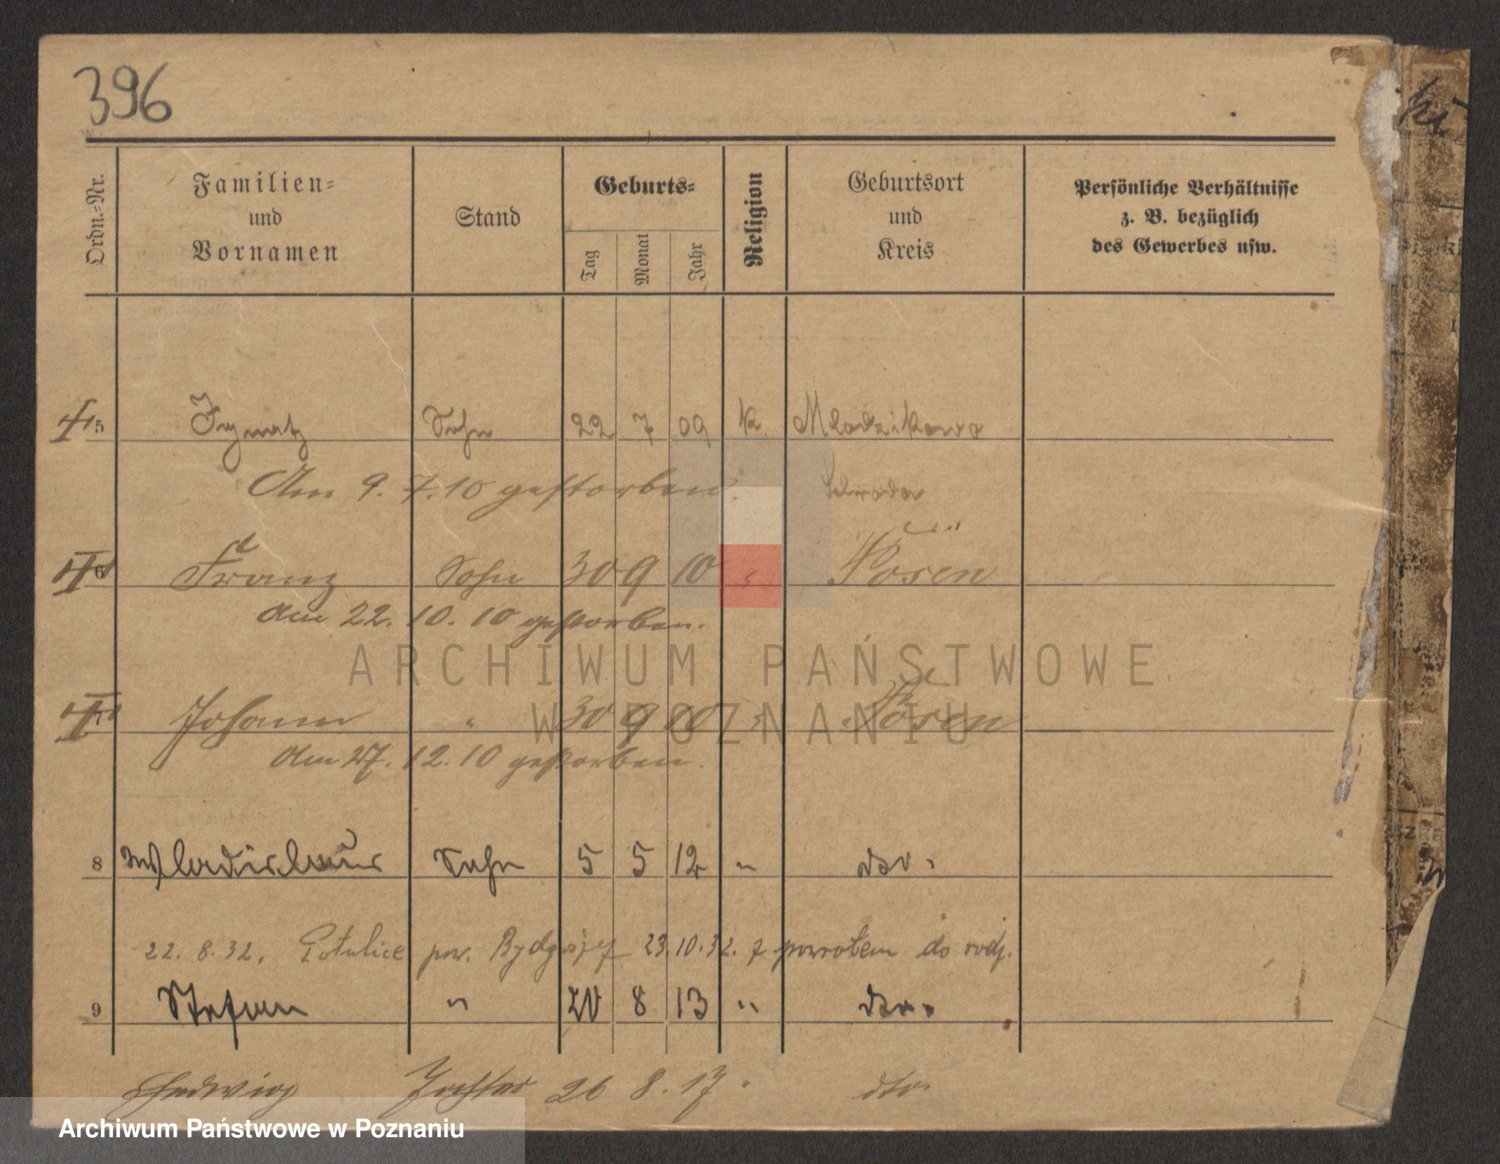 396
Ordn.-Nr.
Familien-
und
Vornamen
Stand
Geburts-
Tag
Monat
Jahr
Religion
Geburtsort
und
Kreis
Persönliche Verhältnisse
z. B. bezüglich
des Gewerbes usw.
5 Ignatz Sohn 22 7 09 k. Mlodzikowo
Am 9. 7. 10 gestorben. Schroda
6 Franz Sohn 30 9 10 " Posen
am 22. 10. 10 gestorben.
7 Johann " 30 9 10 " Posen
am 27. 12. 10 gestorben.
8 Wladislaus Sohn 5 5 12 " dto.
22. 8. 32. pow. Bydgoszcz 23.10.32. z powrotem do rodz.
9 Stefan " 20 8 13 " dto.
Hedwig Tochter 26 8. 17 " dto
ARCHIWUM PAŃSTWOWE
W POZNANIU
Archiwum Państwowe w Poznaniu